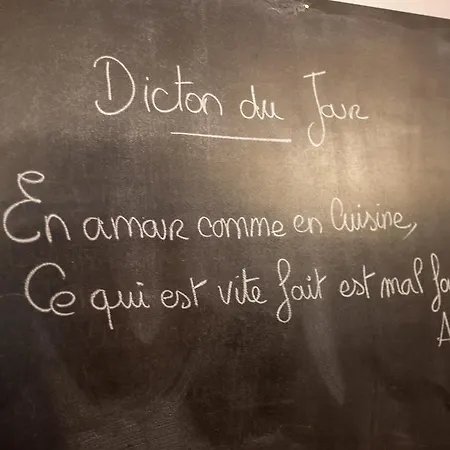 Dicton du Jour
En amour comme en Cuisine,
Ce qui est vite fait est mal fa
A